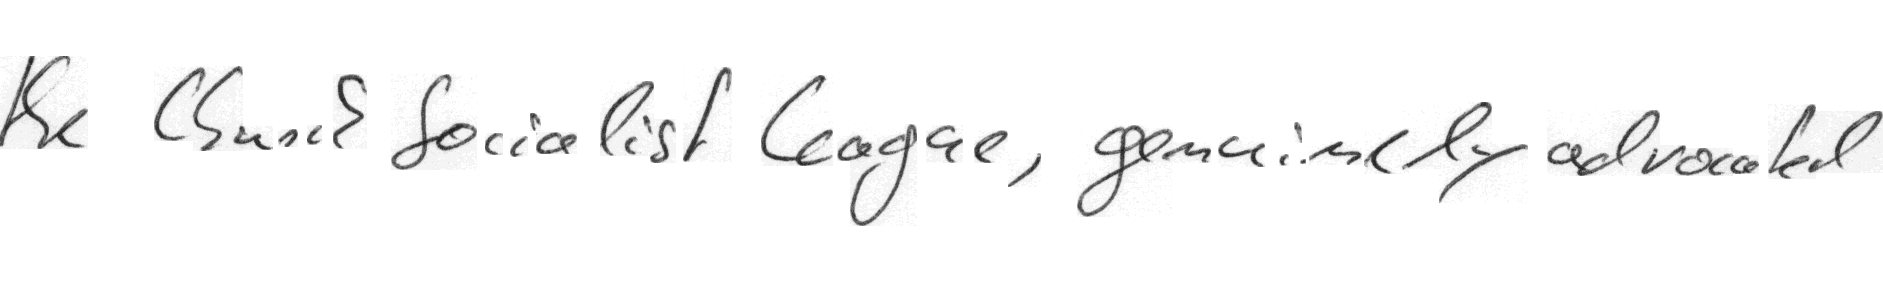 the Church Socialist League, genuinely advocated